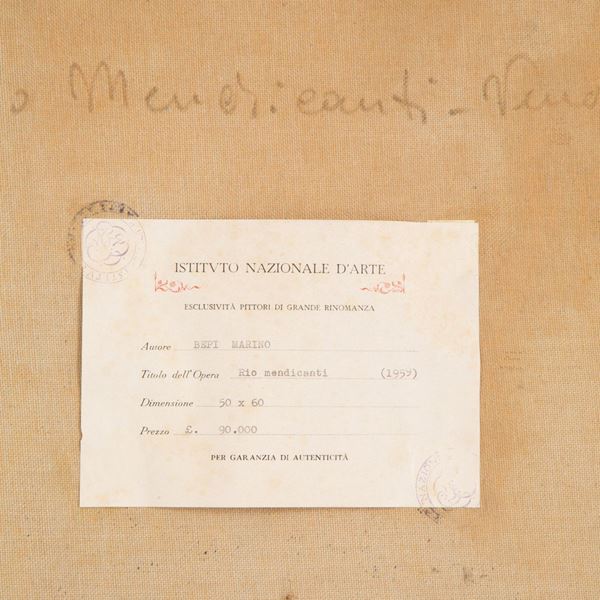 o Mendicanti - Vene
ISTITVTO NAZIONALE D'ARTE
ESCLUSIVITÀ PITTORI DI GRANDE RINOMANZA
Autore BEPI MARINO
Titolo dell'Opera Rio mendicanti (1959)
Dimensione 50 x 60
Prezzo £. 90.000
PER GARANZIA DI AUTENTICITÀ